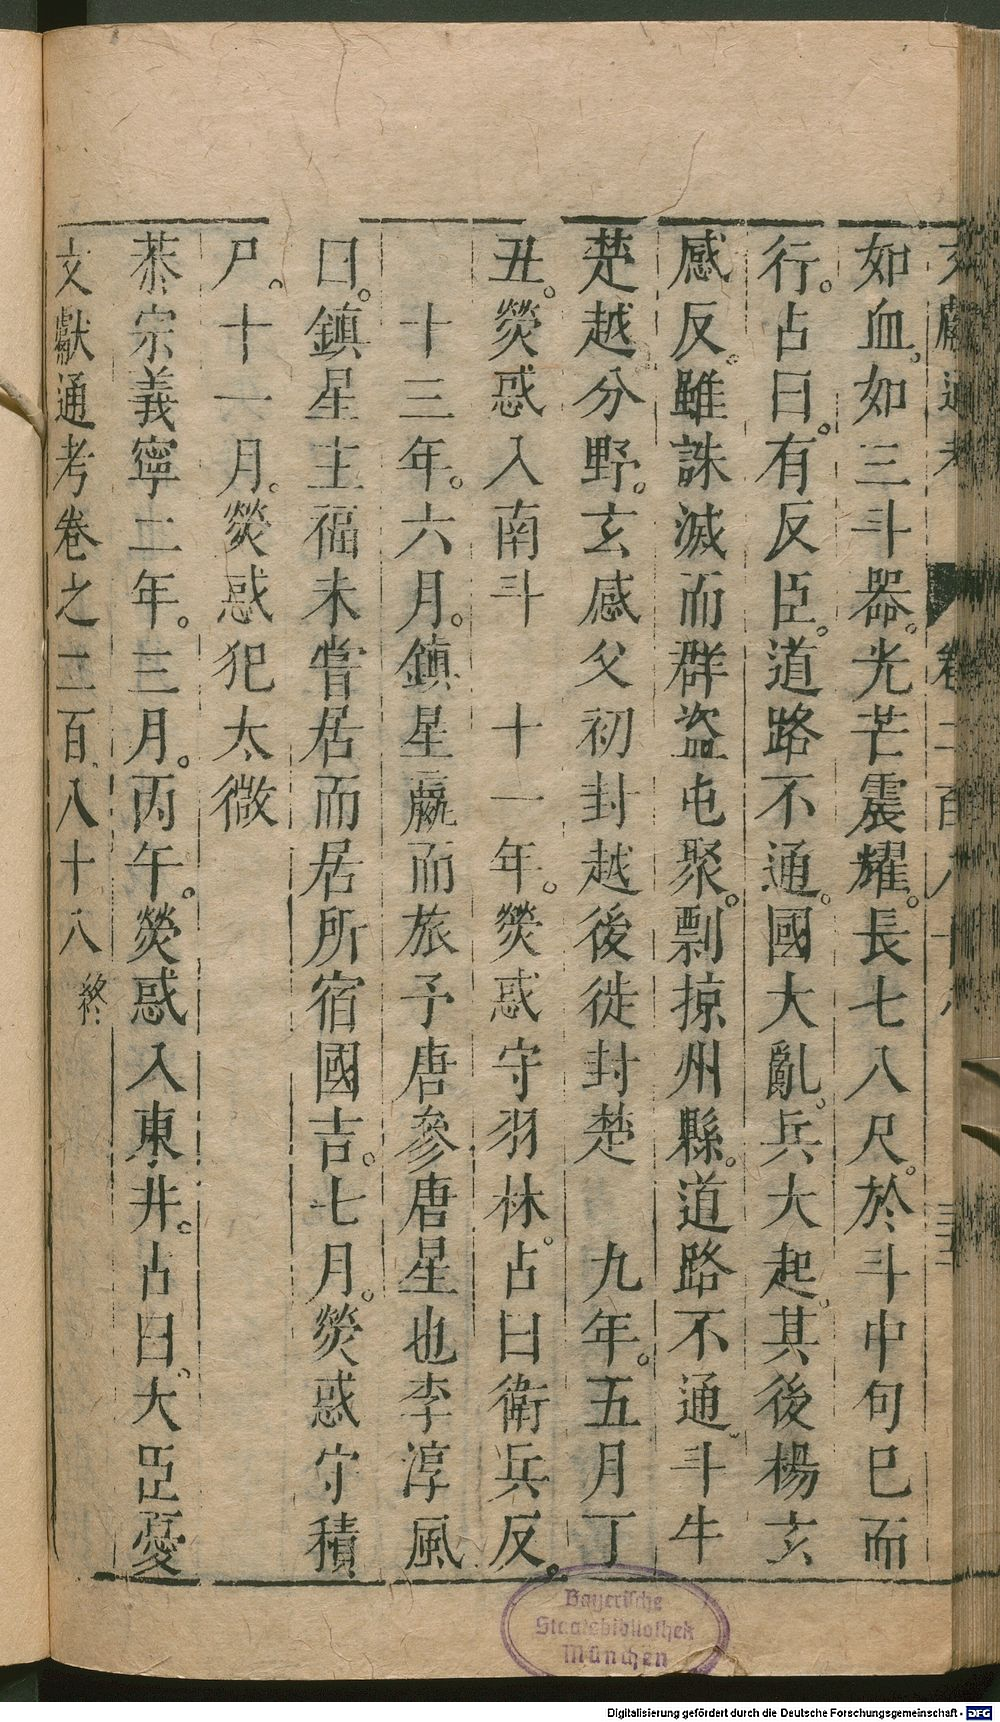 文獻通考 卷二百八十八
如血。如三斗器。光芒震耀。長七八尺。於斗中句巳而
行。占曰。有反臣。道路不通。國大亂。兵大起。其後楊玄
感反。雖誅滅而群盜屯聚。剽掠州縣。道路不通。斗牛
楚越分野。玄感父初封越後徙封楚 九年。五月丁
丑。熒惑入南斗 十一年。熒惑守羽林。占曰衛兵反。
十三年。六月。鎮星嬴而旅予唐參唐星也李淳風
曰。鎮星主福未嘗居而居所宿國吉。七月。熒惑守積
尸。十一月。熒惑犯太微
恭宗義寧二年。三月。丙午。熒惑入東井。占曰。大臣憂
文獻通考卷之二百八十八 終
Bayerische
Staatsbibliothek
München
Digitalisierung gefördert durch die Deutsche Forschungsgemeinschaft - DFG